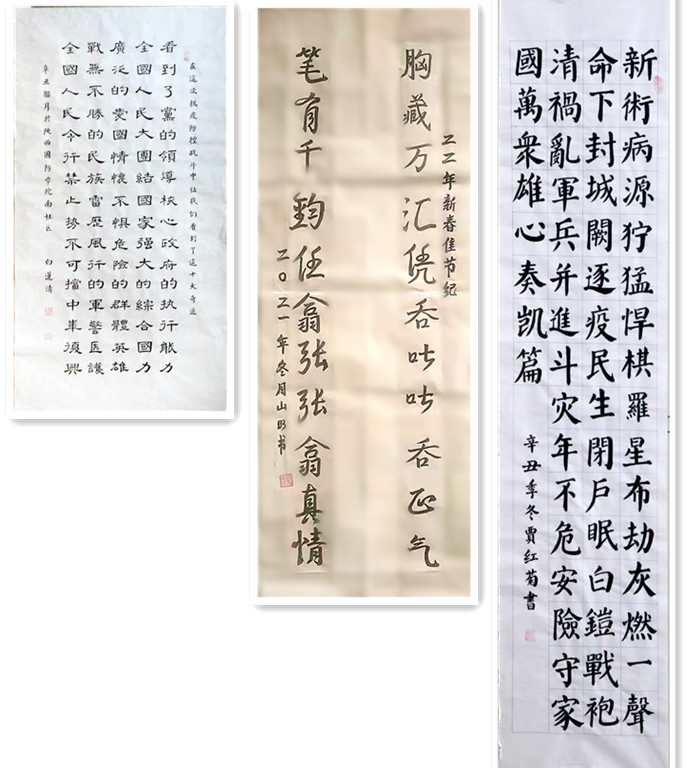 在這次抗疫防控战斗中让我们看到了這十大奇迹
看到了黨的領導核心政府的执行能力
全國人民大團結國家强大的綜合國力
廣泛的愛國情懷不惧危險的群體英雄
戰無不勝的民族雷厲風行的軍警医護
全國人民令行禁止势不可擋中華復興
辛丑腊月於陕西国防学院南社区 白莲清
二二年新春佳节纪
胸藏万汇凭吞吐吐吞正气
笔有千鈞任翕张张翕真情
二〇二一年冬月山明书
新術病源狞猛悍棋羅星布劫灰燃一聲
命下封城闕逐疫民生閉戶眠白鎧戰袍
清禍亂軍兵并進斗灾年不危安險守家
國萬衆雄心奏凯篇
辛丑季冬賈红菊書